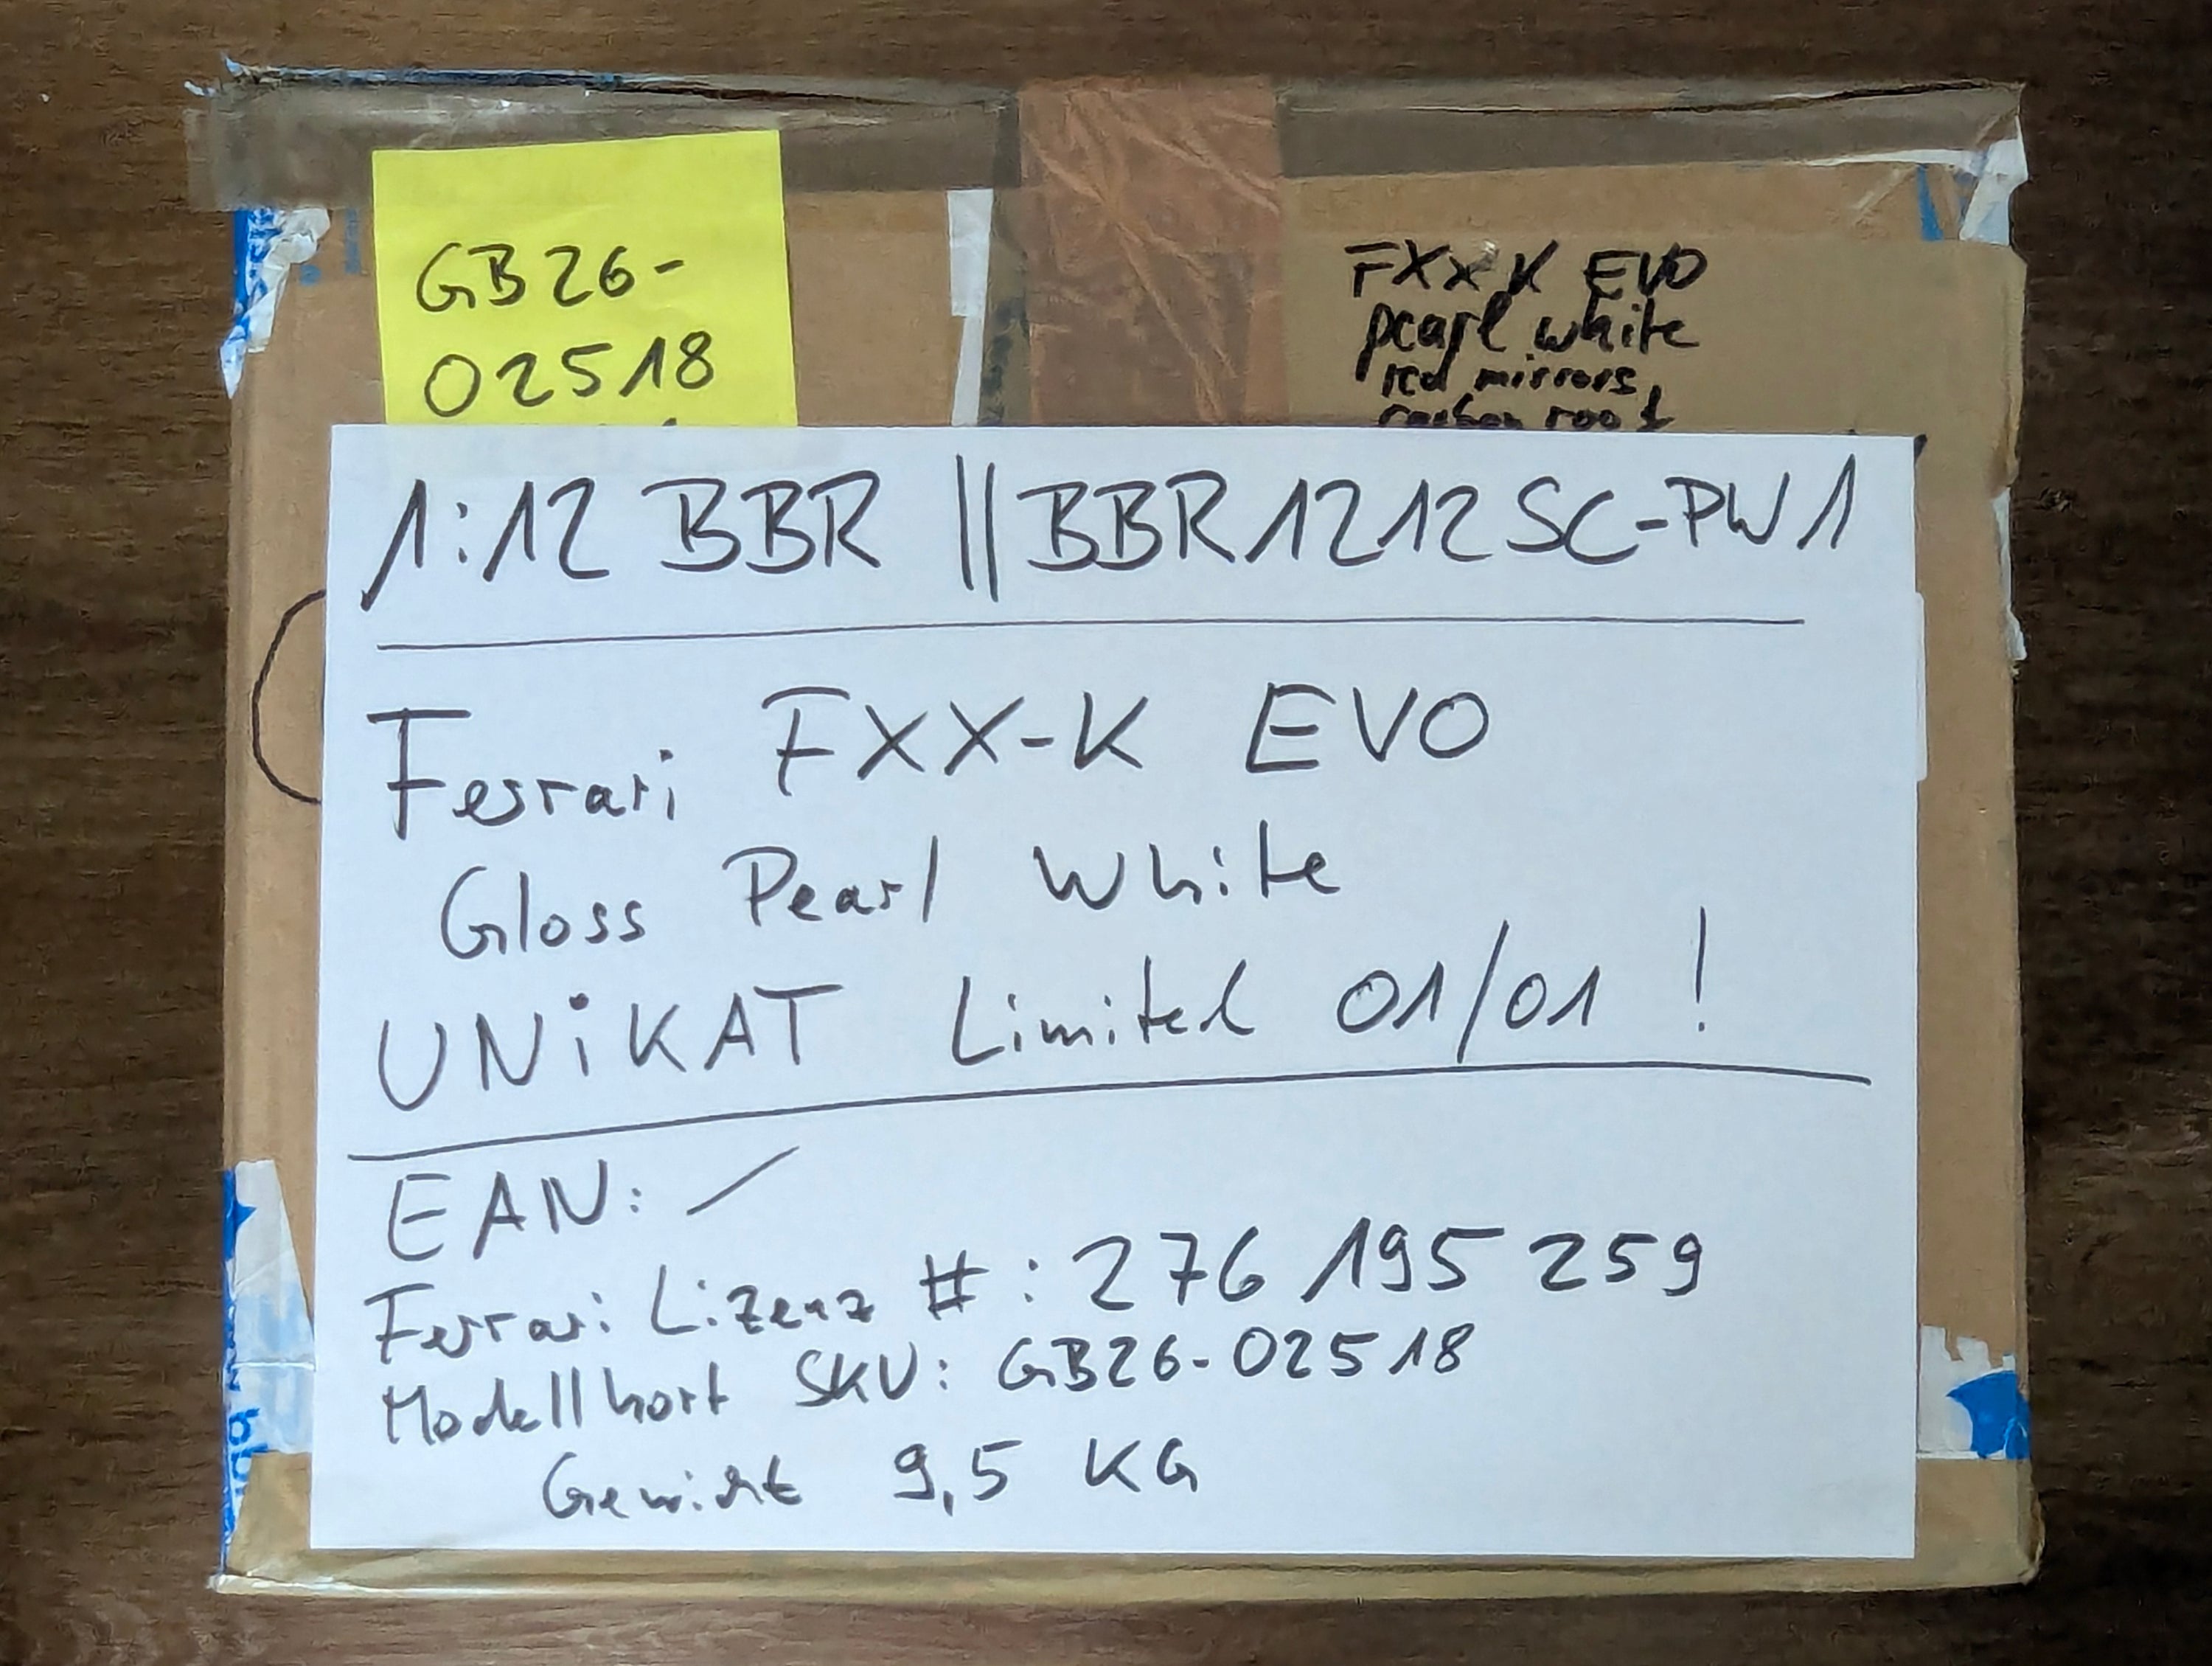 GB26-
02518
FXX K EVO
pearl white
red mirrors
carbon roof
1:12 BBR || BBR1212SC-PW1
Ferrari FXX-K EVO
Gloss Pearl White
UNiKAT Limited 01/01 !
EAN: /
Ferrari Lizenz #: 276 195 259
Modellhort SKU: GB26-02518
Gewicht 9,5 KG